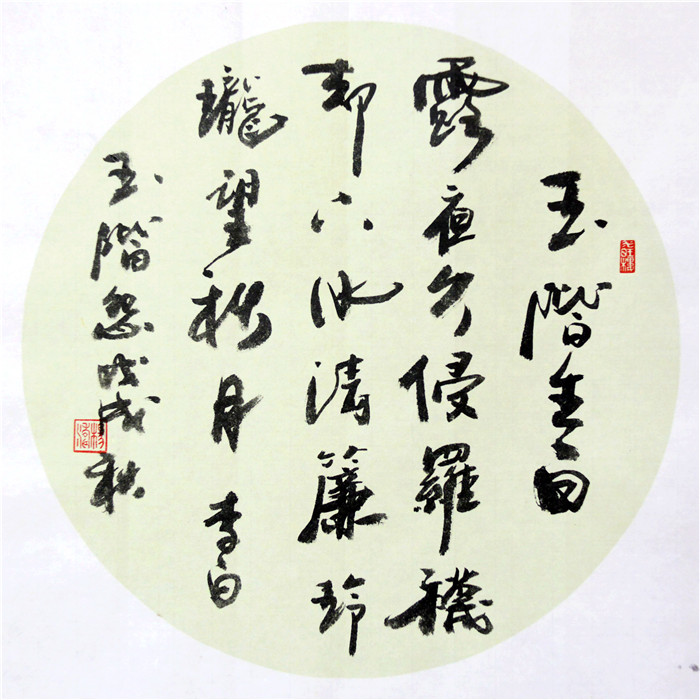 玉階生白
露夜久侵羅襪
却下水精簾玲
瓏望秋月 李白
玉階怨戊戌秋